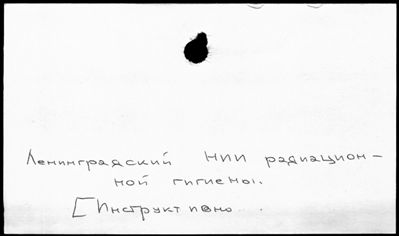 Ленинградский НИИ радиацион-
ной гигиены.
[Инструктивно...